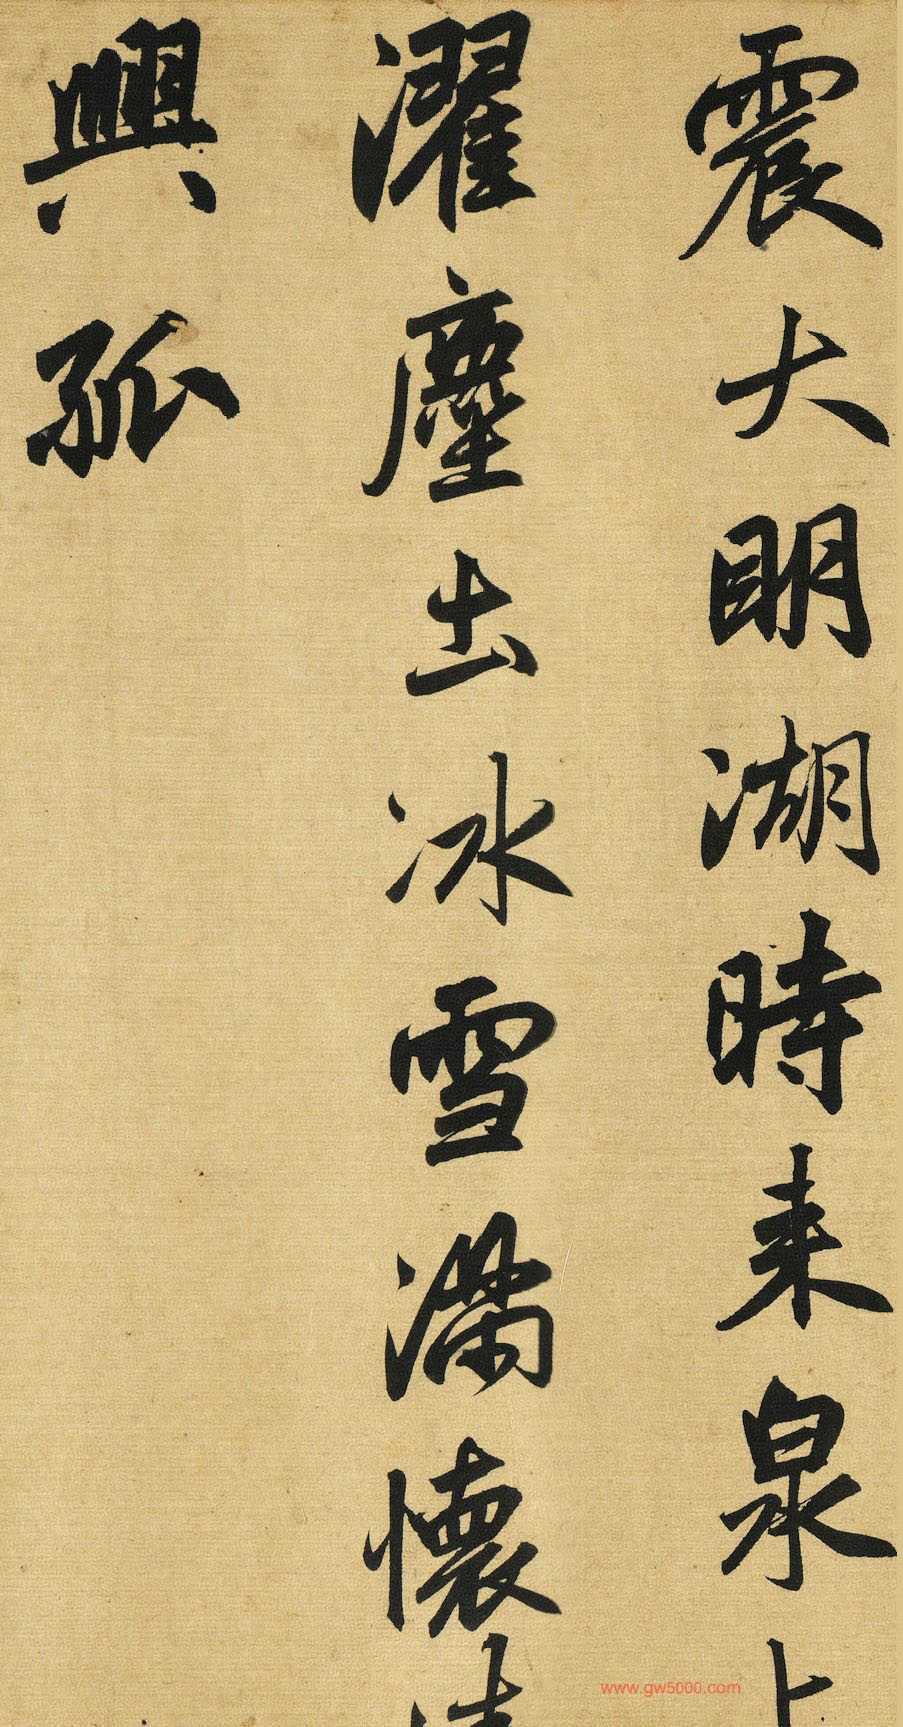 震大明湖時来泉上
濯塵出冰雪滿懷清
興孤
www.gw5000.com